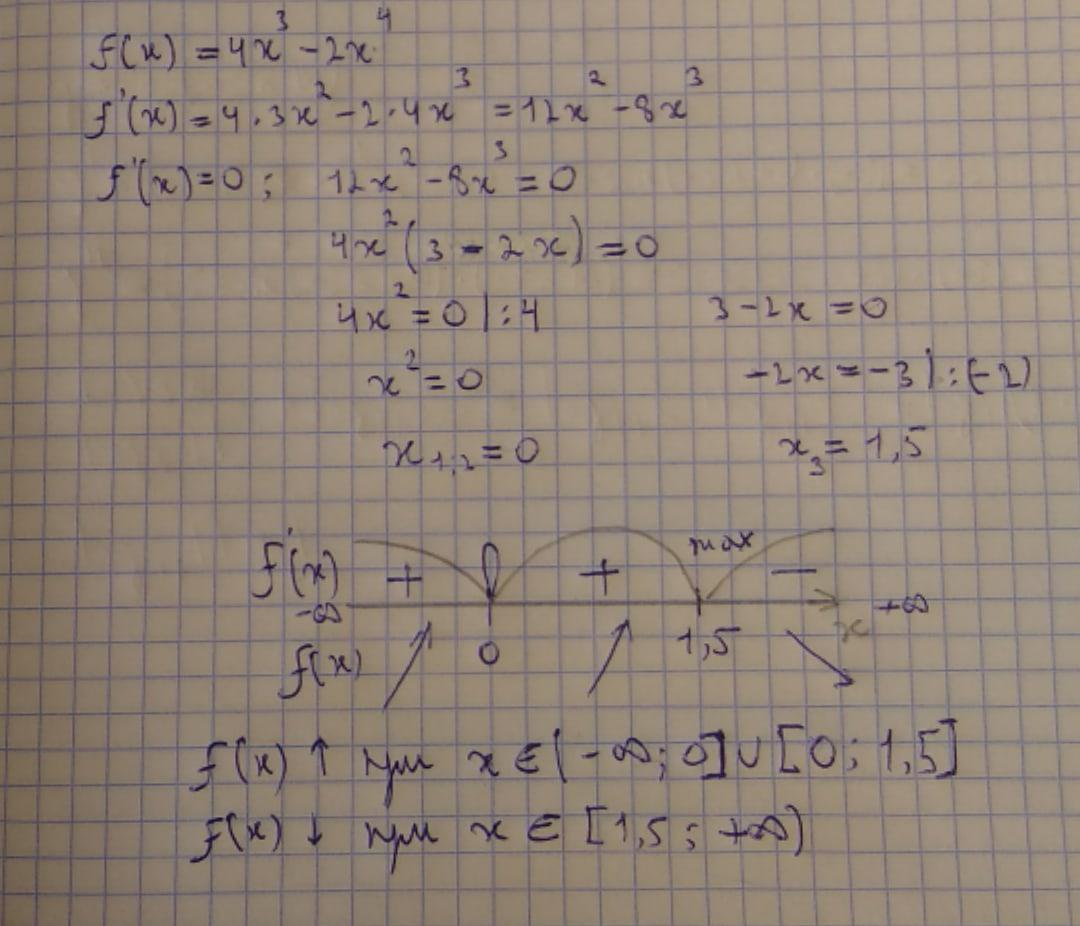 f(x) = 4x³ - 2x⁴
f'(x) = 4·3x² - 2·4x³ = 12x² - 8x³
f'(x) = 0 ; 12x² - 8x³ = 0
4x²(3 - 2x) = 0
4x² = 0 |:4 3 - 2x = 0
x² = 0 -2x = -3 |:(-2)
x₁,₂ = 0 x₃ = 1,5
f'(x) + + max −
-∞ x +∞
f(x) ↗ 0 ↗ 1,5 ↘
f(x) ↑ при x ∈ (-∞; 0] ∪ [0; 1,5]
f(x) ↓ при x ∈ [1,5 ; +∞)